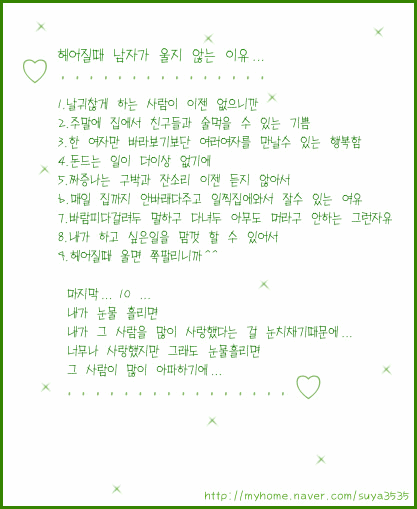 헤어질때 남자가 울지 않는 이유...
1.날귀찮게 하는 사람이 이젠 없으니깐
2.주말에 집에서 친구들과 술먹을 수 있는 기쁨
3.한 여자만 바라보기보단 여러여자를 만날수 있는 행복함
4.돈드는 일이 더이상 없기에
5.짜증나는 구박과 잔소리 이젠 듣지 않아서
6.매일 집까지 안바래다주고 일찍집에와서 잘수 있는 여유
7.바람피다걸려두 말하구 다녀두 아무도 머라구 안하는 그런자유
8.내가 하고 싶은일을 맘껏 할 수 있어서
9.헤어질때 울면 쪽팔리니까^^
마지막... 10 ...
내가 눈물 흘리면
내가 그 사람을 많이 사랑했다는 걸 눈치채기때문에...
너무나 사랑했지만 그래도 눈물흘리면
그 사람이 많이 아파하기에...
http://myhome.naver.com/suya3535